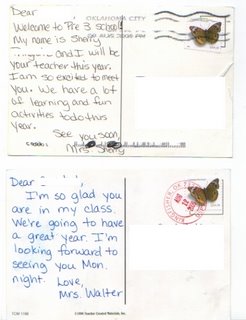 Dear
Welcome to Pre 3 school!
My name is Sherry
and I will be
your teacher this year.
I am so excited to meet
you. We have a lot
of learning and fun
activities to do this
year.
See you soon,
Mrs. Sherry
OKLAHOMA CITY
Dear
I'm so glad you
are in my class.
We're going to have
a great year. I'm
looking forward to
seeing you Mon.
night. Love,
Mrs. Walter
Teacher Created Materials, Inc.